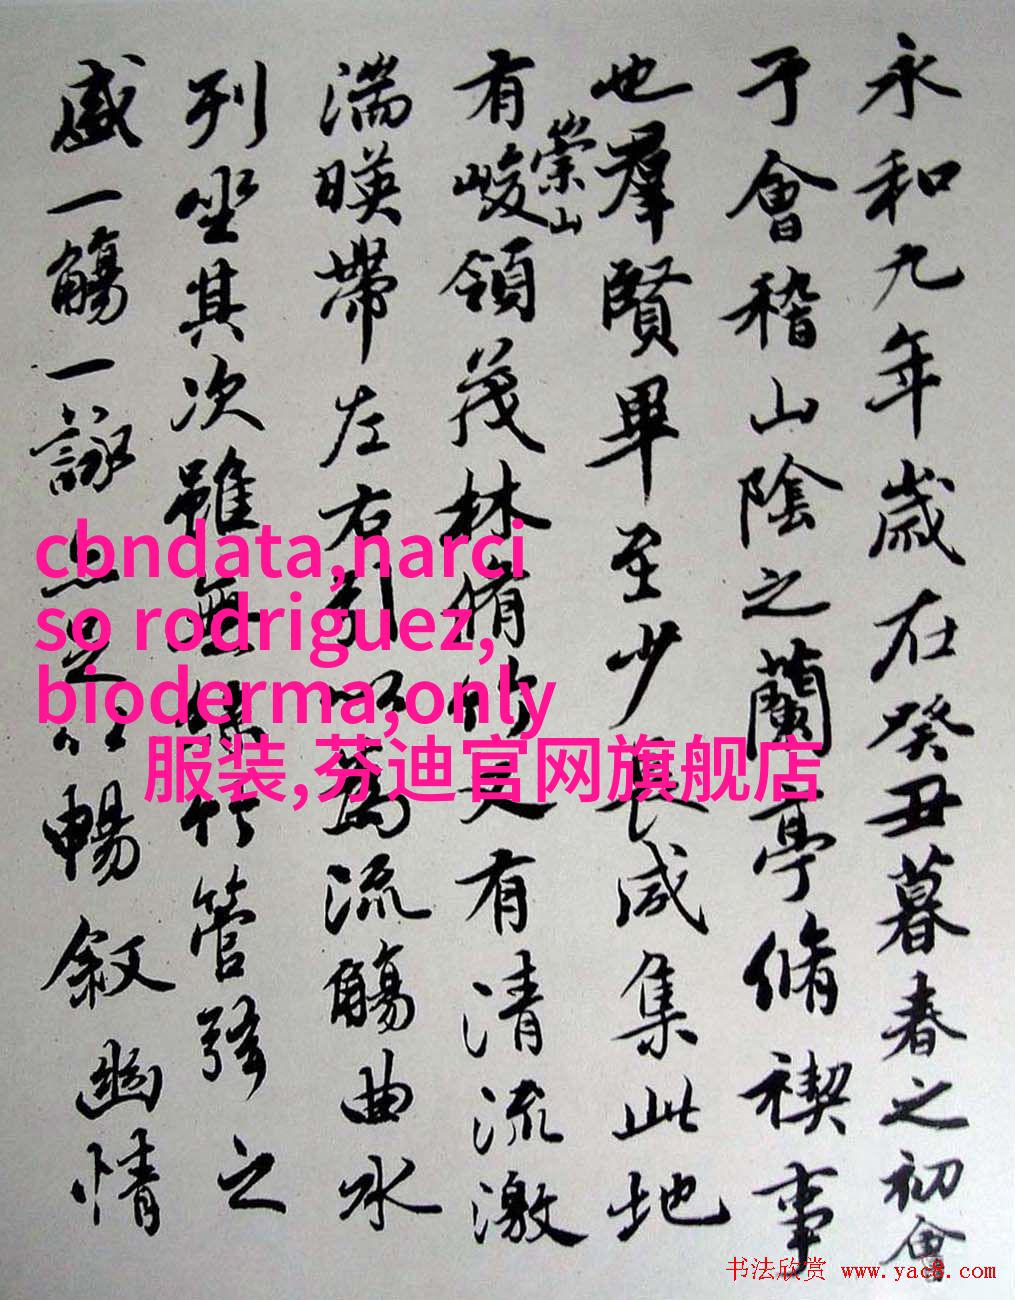 永和九年歲在癸丑暮春之初會
于會稽山陰之蘭亭脩禊事
也羣賢畢至少長咸集此地
有崇山峻領茂林脩竹又有清流激
湍暎帶左右引以為流觴曲水
列坐其次雖無絲竹管弦之
盛一觴一詠亦足以暢叙幽情
cbndata,narci
so rodriguez,
bioderma,only
服装,芬迪官网旗舰店
书法欣赏 www.yac8.com